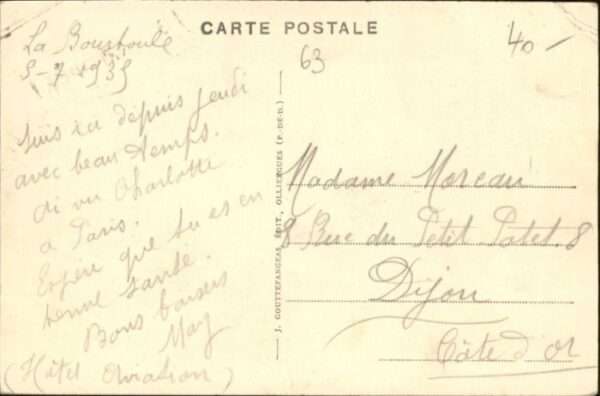 CARTE POSTALE
La Bourboule
5-7-1935
63
40-
Suis ici depuis jeudi
avec beau temps.
Ai vu Charlotte
à Paris.
Espère que tu es en
bonne santé.
Bons baisers
May
(Hôtel Aviation)
J. GOUTTEFANGEAS, ÉDIT., OLLIERGUES (P.-DE-D.)
Madame Moreau
8 Rue du Petit Potet. 8
Dijon
Côte d'Or